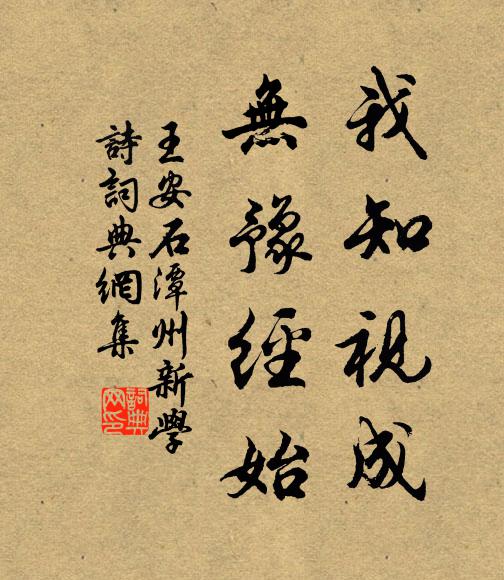 我知視成
無豫經始
王安石潭州新學
詩詞典網集
詞典網印